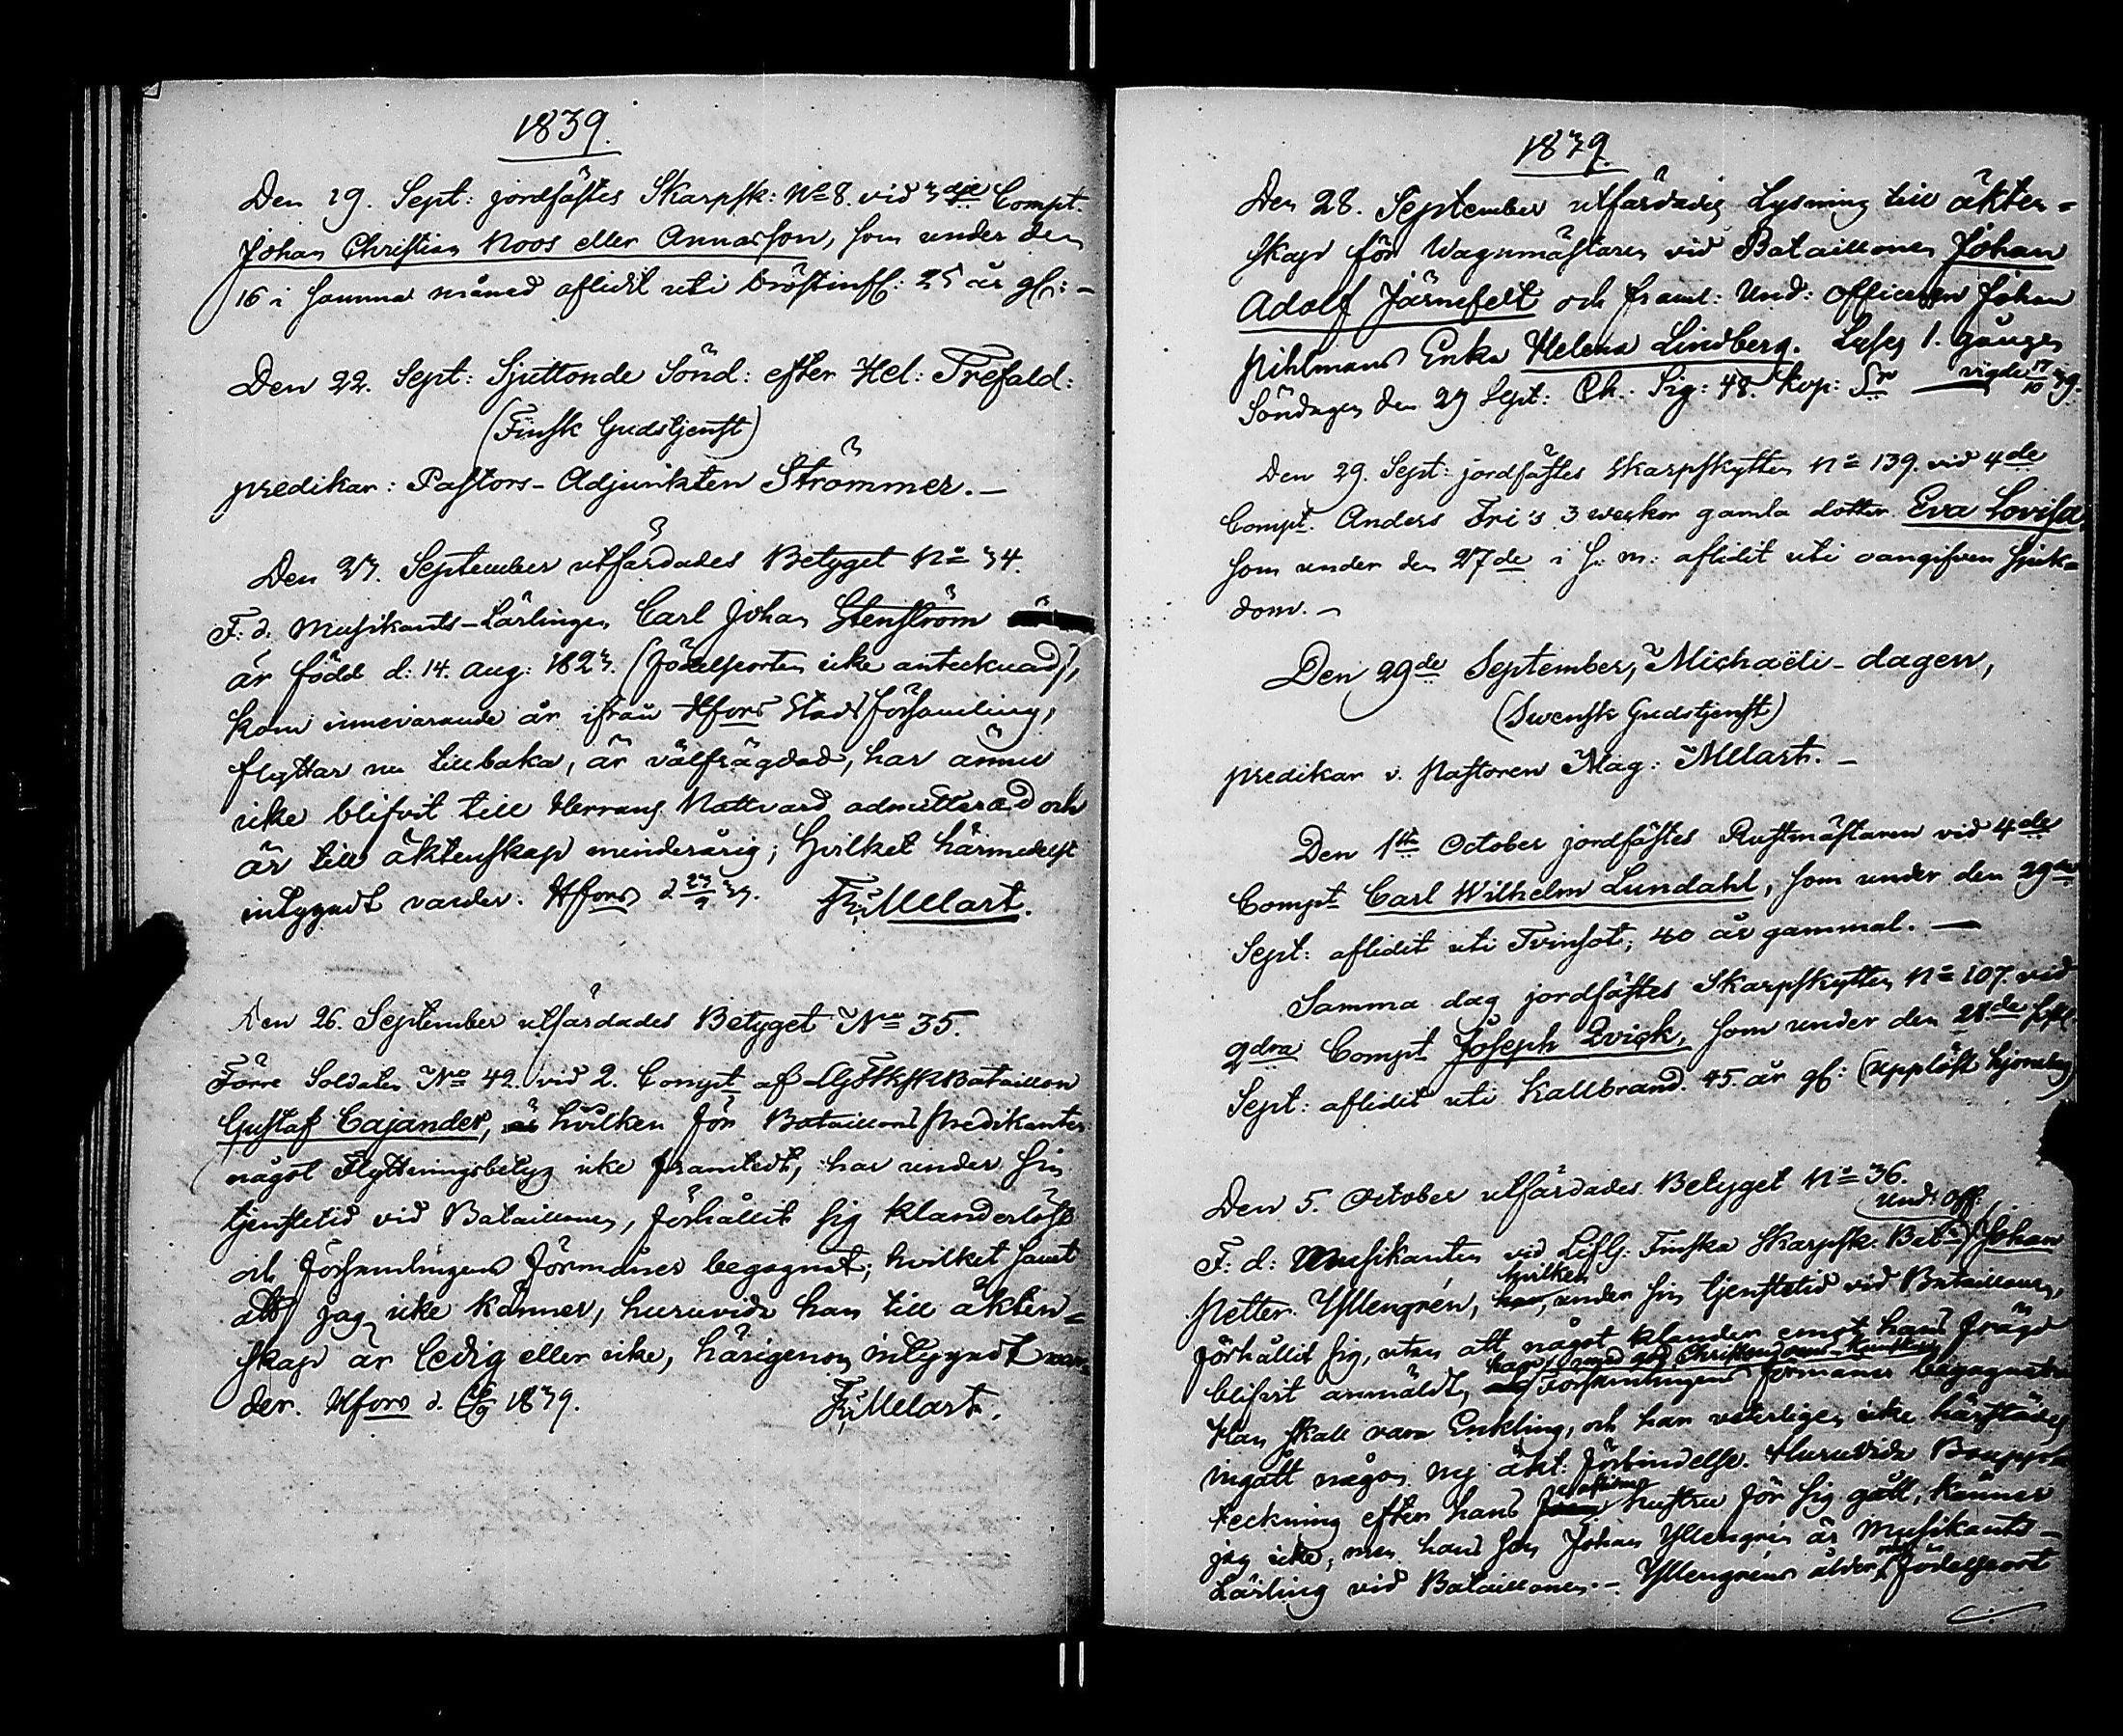 1839.
Den 19. Sept: jordfästes Skarpsk: No 8. vid 3dje Compt.
Johan Christian Roos eller Annasson, som under den
16 i samma månad aflidit uti bröstinfl: 25 år gl: -
Den 22. Sept: Sjuttonde Sönd: efter Hel: Trefald:
(Finsk Gudstjenst)
predikar: Pastors-Adjunkten Strömmer. -
Den 23. September utfärdades Betyget No 34.
F. d. Musikants-Lärlingen Carl Johan Stenström
är född d: 14. Aug: 1823. (födelseorten icke antecknad),
kom innevarande år ifrån Hfors Stads församling,
flyttar nu tillbaka, är välfrägdad, har ännu
icke blifvit till Herrans Nattvard admitterad och
är till äktenskap minderårig; hvilket härmedelst
intygadt varder. Hfors d 23/9 39. Fr: Melart.
Den 26. September utfärdades Betyget No 35.
Förre Soldaten No 42 vid 2. Compt af Bataillon
Gustaf Cajander, hvilken för Bataillons Predikanten
något Flyttningsbetyg icke framtedt, har under sin
tjenstetid vid Bataillonen, förhållit sig klanderlöst
och församlingens förmåner begagnat; hvilket samt
att jag icke känner, huruvida han till äkten=
skap är ledig eller icke, härigenom intygadt var-
der. Hfors d. 26/9 1839. Fr: Melart.
1839.
Den 28. September utfärdades Lysning till äkten=
skap för Wagnmästaren vid Bataillonen Johan
Adolf Järnefelt och framl: Und: officeren Johan
Pihlmans Enka Helena Lindberg. Lyses 1. gången
Söndagen den 29 Sept: Ch. Sig: 48. kop: Sr vigde 17/10 39.
Den 29. Sept: jordfästes Skarpskytten No 139. vid 4de
Compt. Anders Fri's 3 weckor gamla dotter Eva Lovisa
som under den 27de i s. m: aflidit uti oangifven sjuk=
dom. -
Den 29de September, Michaëli-dagen,
(Swensk Gudstjenst)
predikar v. Pastoren Mag: Melart. -
Den 1sta October jordfästes Rustmästaren vid 4de
Compt Carl Wilhelm Lundahl, som under den 29de
Sept: aflidit uti Tvinsot, 40 år gammal. -
Samma dag jordfästes Skarpskytten No 107. vid
2dra Compt Joseph Qvick, som under den 28de
Sept: aflidit uti Kallbrand. 45 år gl: (upplöst hjonelag)
Den 5. October utfärdades Betyget No 36.
Und: Off:
F: d: Musikanten vid Lifg: Finska Skarpsk: Batn Johan
Petter Yllengrén, hvilken under sin tjenstetid vid Bataillonen,
förhållit sig, utan att något klander emot hans frägd
blifvit anmäldt, har, med god Christendoms-kunskap
Församlingens förmåner begagnat.
Han skall vara Enkling, och har veterligen icke härstädes
ingått någon ny äkt: förbindelse. Huruvida Boupp-
teckning efter hans aflidna hustru för sig gått, känner
jag icke; men hans Son Johan Yllengrén är Musikants-
Lärling vid Bataillonen. - Yllengréns ålder och födelseort